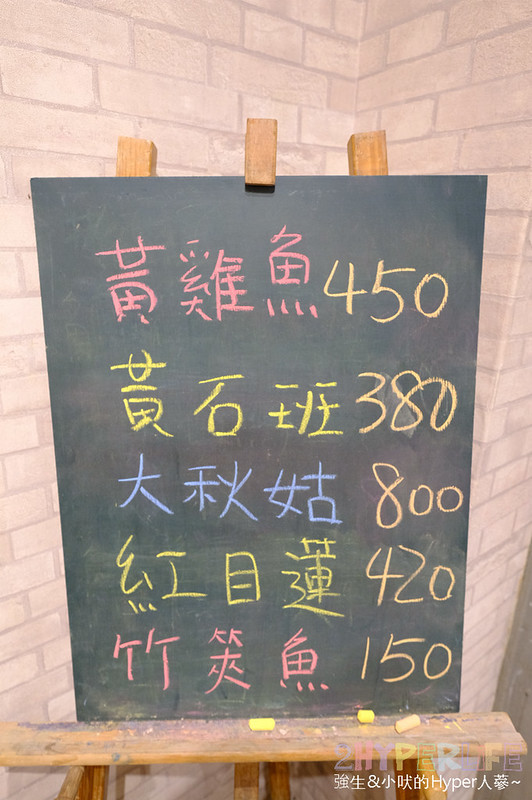 黃雞魚 450
黃石班 380
大秋姑 800
紅目蓮 420
竹筴魚 150
2HYPERLIFE
強生&小吠的Hyper人蔘~